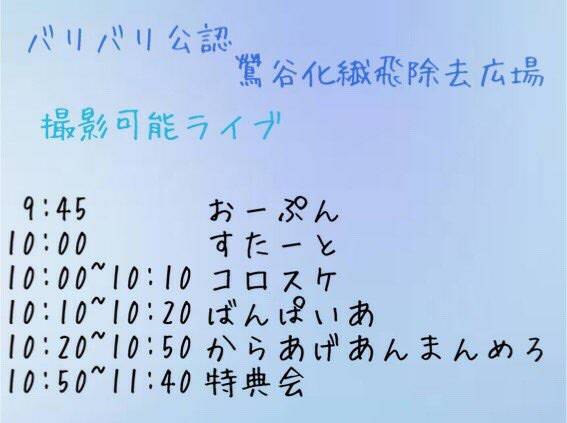 バリバリ公認
鶯谷化繊飛除去広場
撮影可能ライブ
9:45 おーぷん
10:00 すたーと
10:00~10:10 コロスケ
10:10~10:20 ばんぱいあ
10:20~10:50 からあげあんまんめろ
10:50~11:40 特典会